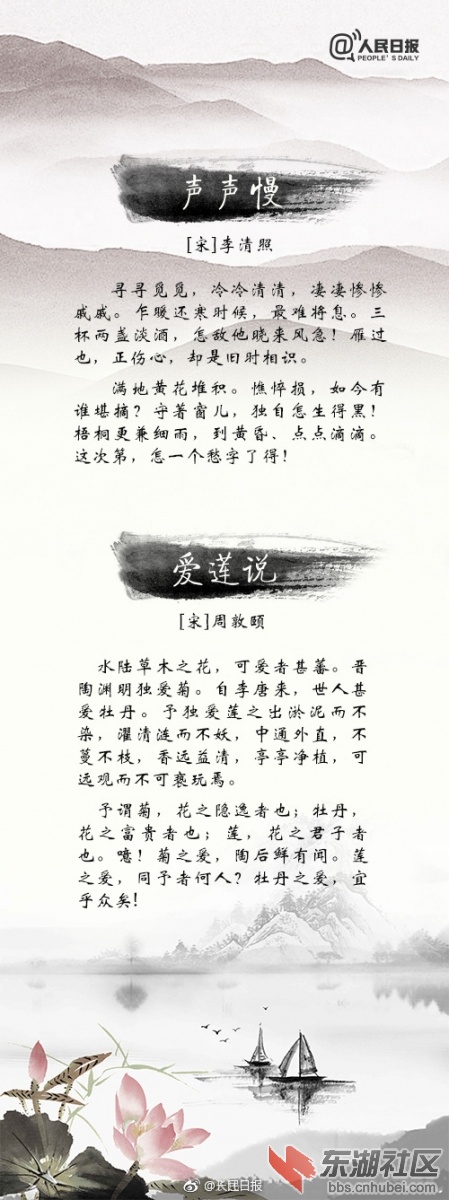 @人民日报
PEOPLE'S DAILY
声声慢
[宋]李清照
寻寻觅觅，冷冷清清，凄凄惨惨
戚戚。乍暖还寒时候，最难将息。三
杯两盏淡酒，怎敌他晓来风急！雁过
也，正伤心，却是旧时相识。
满地黄花堆积。憔悴损，如今有
谁堪摘？守著窗儿，独自怎生得黑！
梧桐更兼细雨，到黄昏、点点滴滴。
这次第，怎一个愁字了得！
爱莲说
[宋]周敦颐
水陆草木之花，可爱者甚蕃。晋
陶渊明独爱菊。自李唐来，世人甚
爱牡丹。予独爱莲之出淤泥而不
染，濯清涟而不妖，中通外直，不
蔓不枝，香远益清，亭亭净植，可
远观而不可亵玩焉。
予谓菊，花之隐逸者也；牡丹，
花之富贵者也；莲，花之君子者
也。噫！菊之爱，陶后鲜有闻。莲
之爱，同予者何人？牡丹之爱，宜
乎众矣！
@长江日报
东湖社区
bbs.cnhubei.com